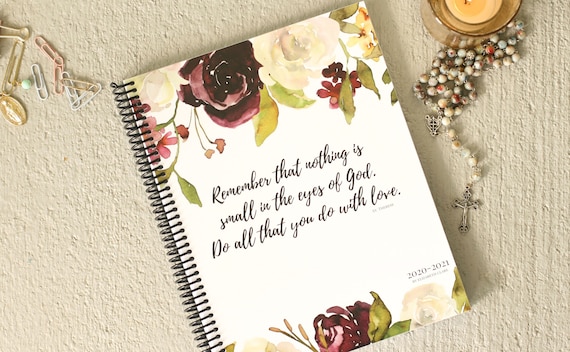 Remember that nothing is
small in the eyes of God.
Do all that you do with love.
ST. THERESE
2020-2021